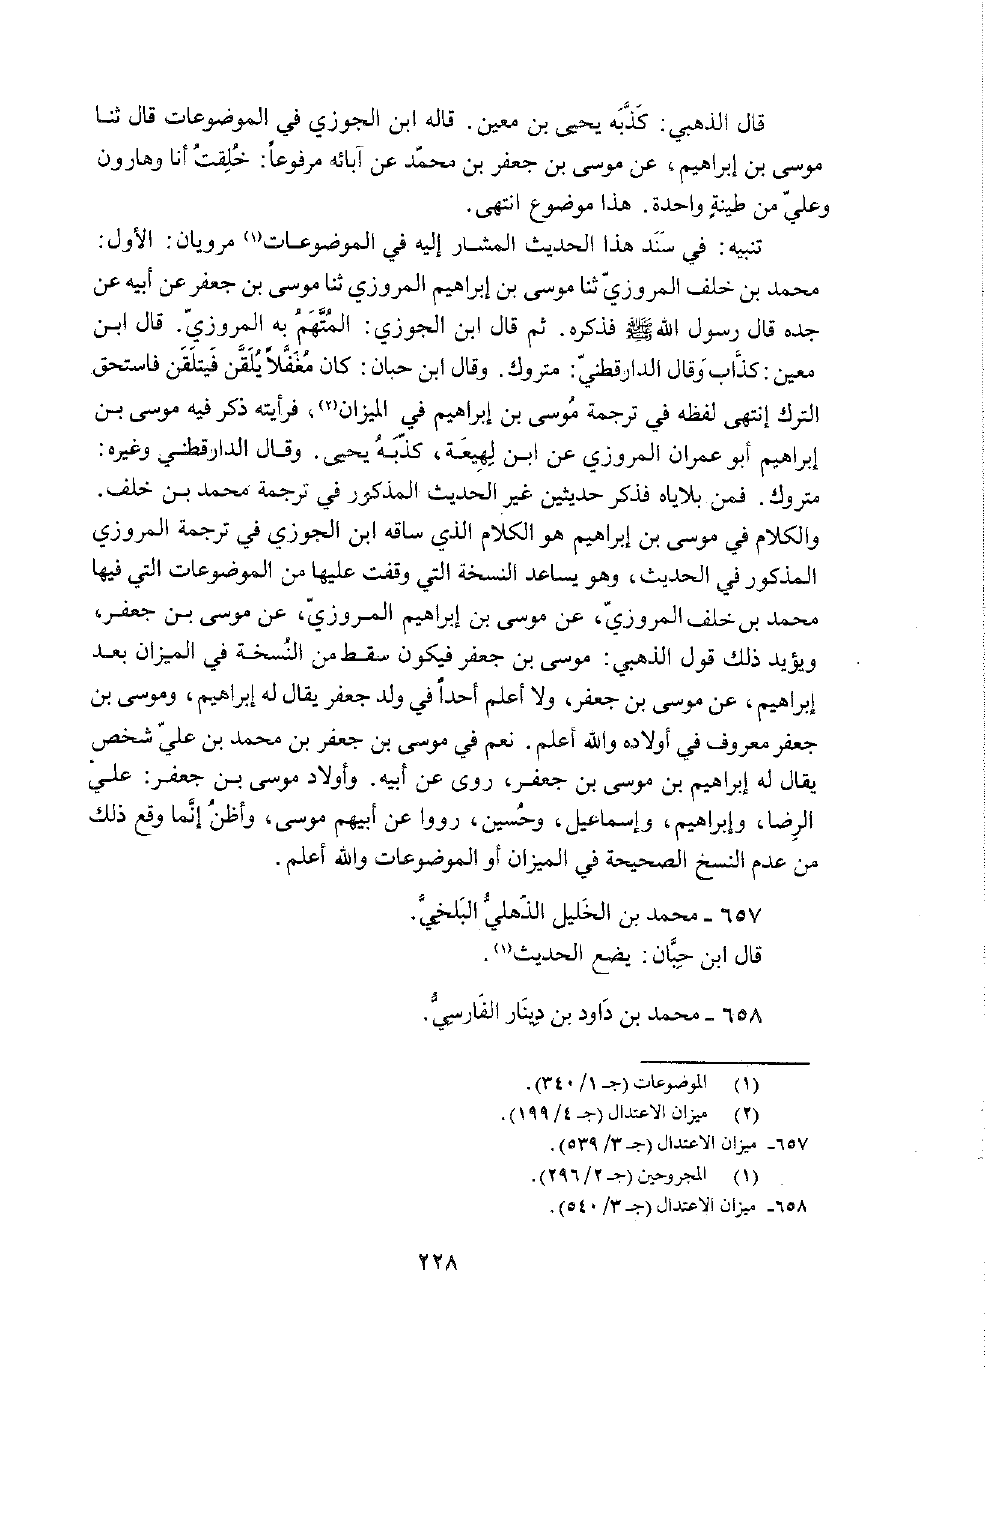 قال الذهبي: كَذَّبَه يحيى بن معين. قاله ابن الجوزي في الموضوعات قال ثنا
موسى بن إبراهيم، عن موسى بن جعفر بن محمّد عن آبائه مرفوعاً: خُلِقتُ أنا وهارون
وعليّ من طينةٍ واحدة. هذا موضوع انتهى.
تنبيه: في سنَد هذا الحديث المشار إليه في الموضوعات(١) مرويان: الأول:
محمد بن خلف المروزيّ ثنا موسى بن إبراهيم المروزي ثنا موسى بن جعفر عن أبيه عن
جده قال رسول الله ﷺ فذكره. ثم قال ابن الجوزي: المُتَّهَمُ به المروزيّ. قال ابن
معين: كذَّاب وَقال الدارقطنيّ: متروك. وقال ابن حبان: كان مُغَفَّلاً يُلَقَّن فَيتلَقَن فاستحق
الترك إنتهى لفظه في ترجمة مُوسى بن إبراهيم في الميزان(٢)، فرأيته ذكر فيه موسى بن
إبراهيم أبو عمران المروزي عن ابن لِهيعَة، كذّبَهُ يحيى. وقال الدارقطني وغيره:
متروك. فمن بلاياه فذكر حديثين غير الحديث المذكور في ترجمة محمد بن خلف.
والكلام في موسى بن إبراهيم هو الكلام الذي ساقه ابن الجوزي في ترجمة المروزي
المذكور في الحديث، وهو يساعد النسخة التي وقفت عليها من الموضوعات التي فيها
محمد بن خلف المروزيّ، عن موسى بن إبراهيم المروزيّ، عن موسى بن جعفر،
ويؤيد ذلك قول الذهبي: موسى بن جعفر فيكون سقط من النُسخة في الميزان بعد
إبراهيم، عن موسى بن جعفر، ولا أعلم أحداً في ولد جعفر يقال له إبراهيم، وموسى بن
جعفر معروف في أولاده والله أعلم. نعم في موسى بن جعفر بن محمد بن عليّ شخص
يقال له إبراهيم بن موسى بن جعفر، روى عن أبيه. وأولاد موسى بن جعفر: عليّ
الرِضا، وإبراهيم، وإسماعيل، وحُسين، رووا عن أبيهم موسى، وأظنُ إنَّما وقع ذلك
من عدم النسخ الصحيحة في الميزان أو الموضوعات والله أعلم.
٦٥٧ ـ محمد بن الخَليل الذّهليُّ البَلخيُّ.
قال ابن حبَّان: يضع الحديث(١).
٦٥٨ ـ محمد بن دَاود بن دِينَار الفَارسيُّ.
(١) الموضوعات (جـ ١/ ٣٤٠).
(٢) ميزان الاعتدال (جـ ٤/ ١٩٩).
٦٥٧ـ ميزان الاعتدال (جـ ٣/ ٥٣٩).
(١) المجروحين (جـ ٢/ ٢٩٦).
٦٥٨ـ ميزان الاعتدال (جـ ٣/ ٥٤٠).
٢٢٨